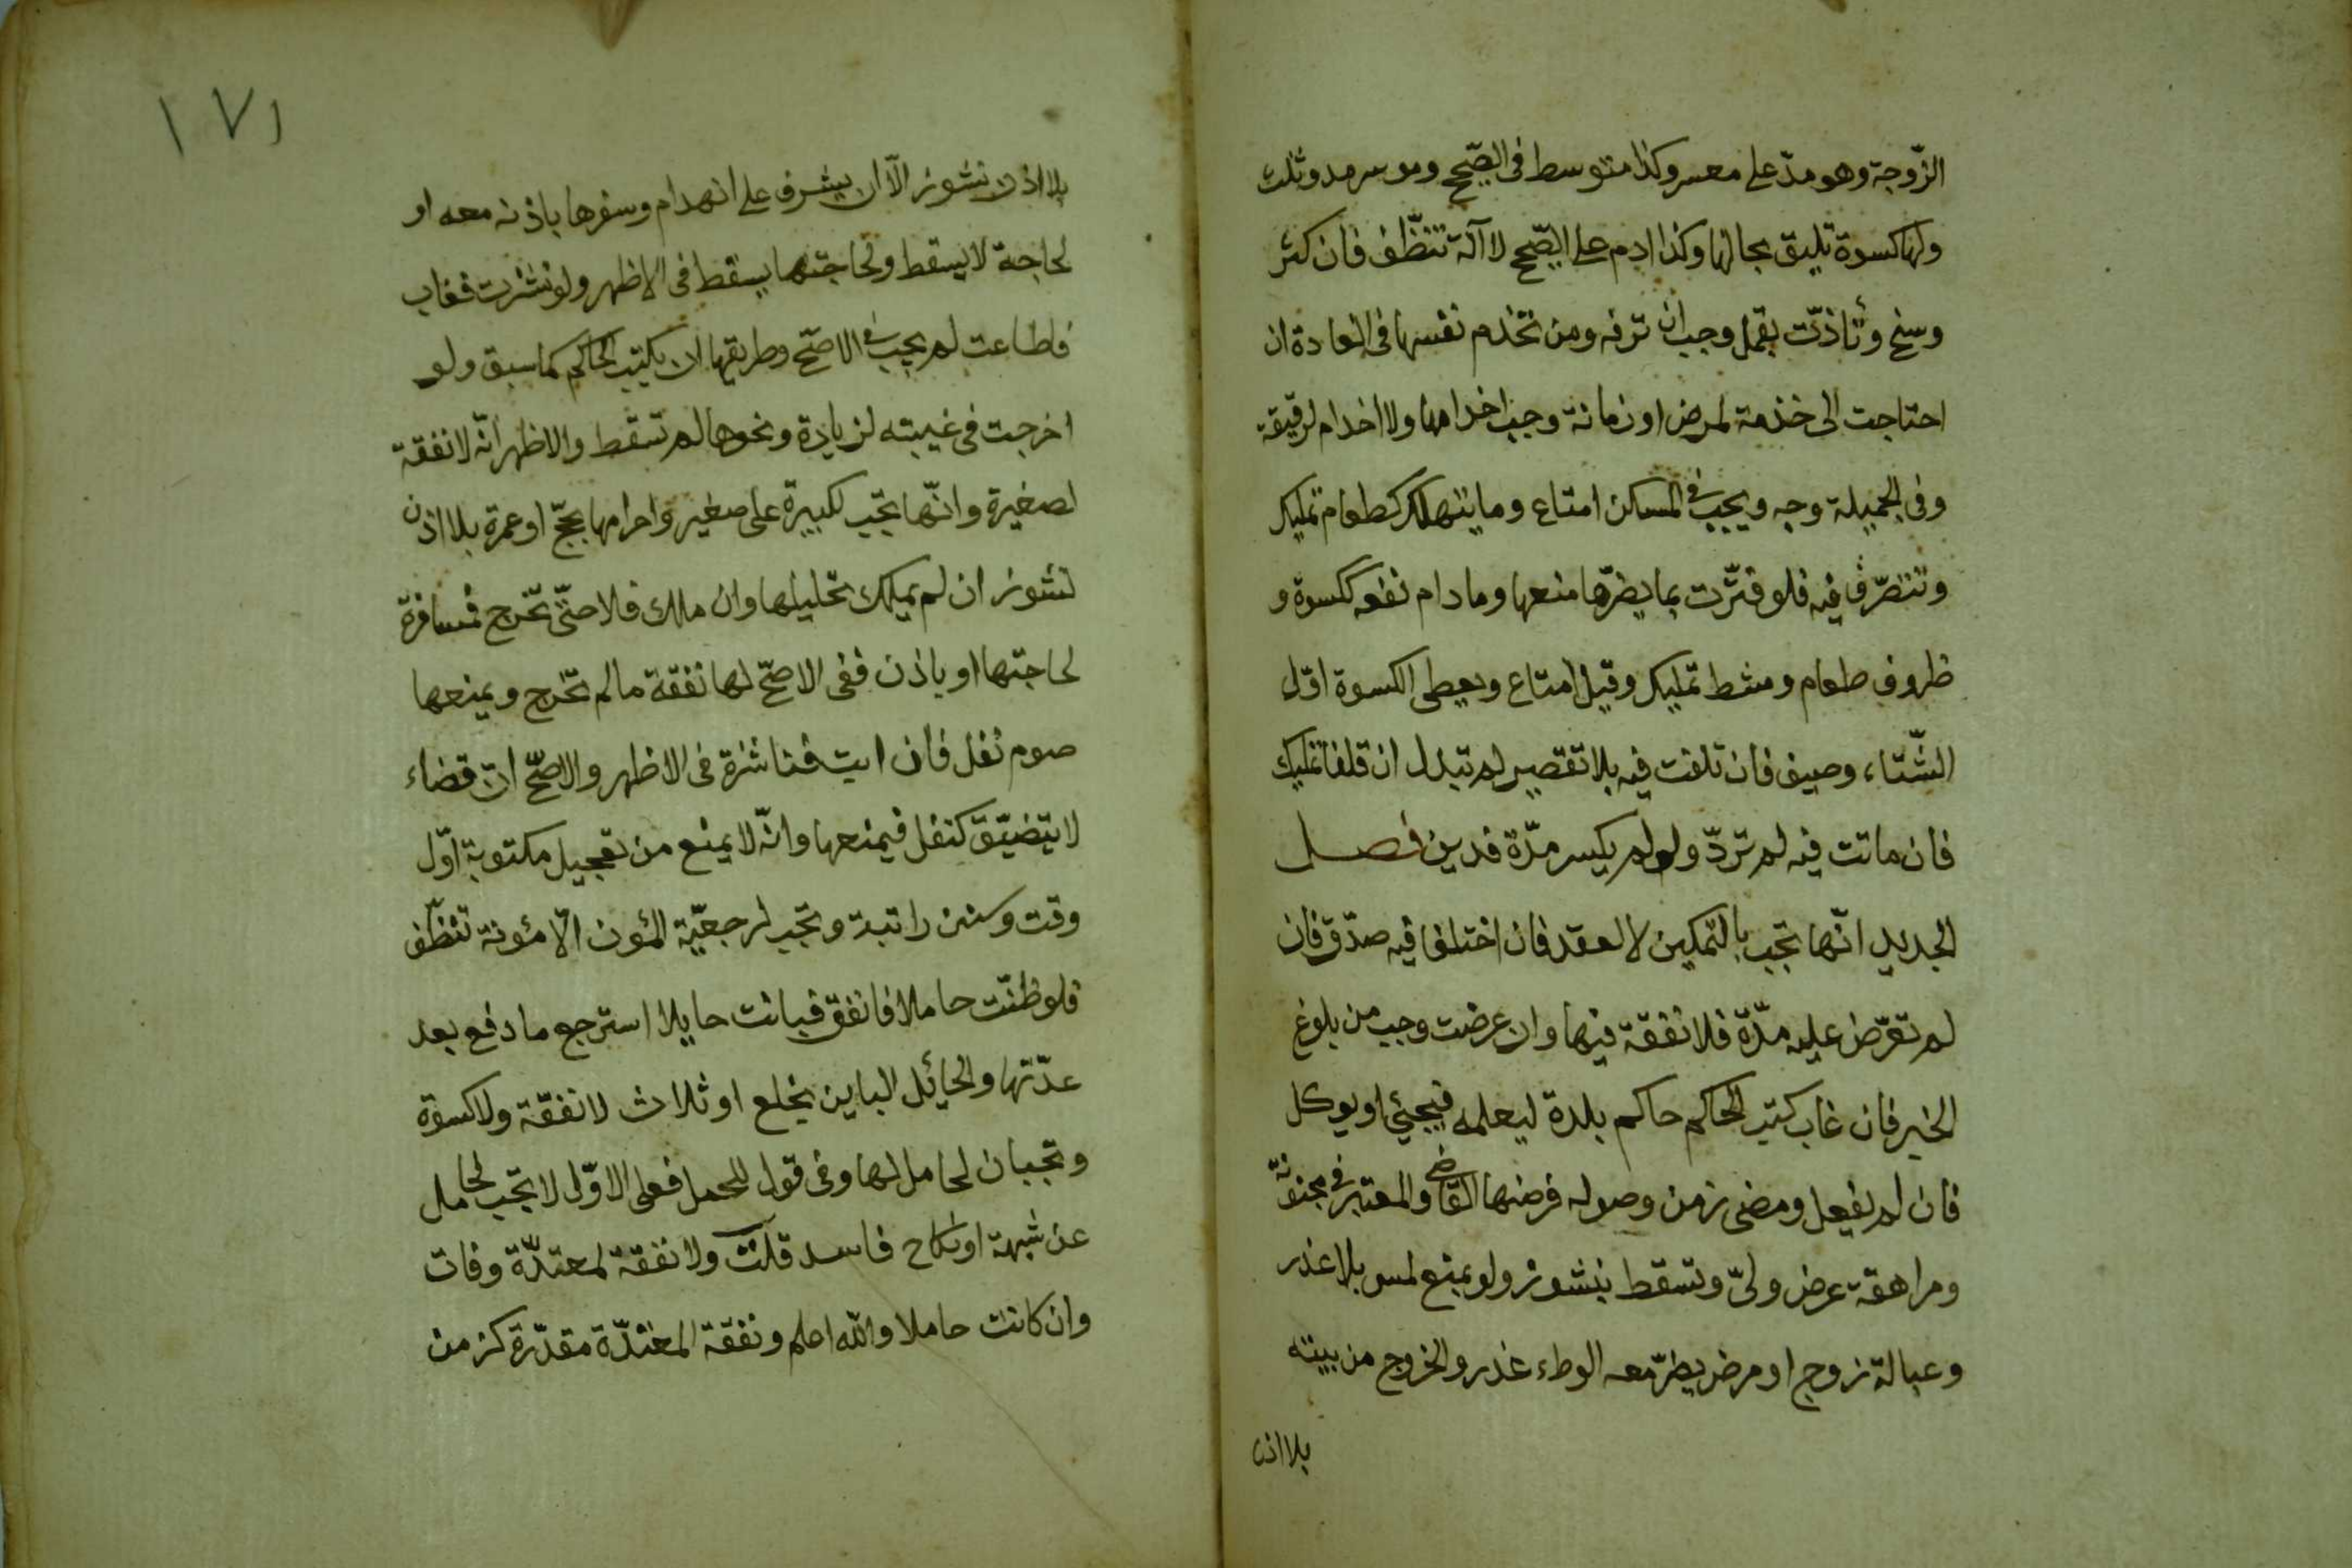 الزّوجة وهو مدّ على معسر وكذا متوسط فى الصّحيح وموسر مد وثلث
ولها كسوة تليق بحالها وكذا ادم على الصّحيح لا آلة تنظّف فان كثر
وسخ وتأذّت بقمل وجب ان ترفه ومن تخدم نفسها فى العادة ان
احتاجت الى خذمة لمرض او زمانة وجب اخدامها ولا اخدام لرقيقة
وفى الجميلة وجه ويجب فى المسكن امتاع وما يتهلك كطعام تمليك
وتتصرّف فيه فلو قترّت بما يضرّها منعها وما دام نفعه ككسوة و
ظروف طعام ومشط تمليك وقيل امتاع ويعطى الكسوة اوّل
الشّتاء وصيف فان تلفت فيه بلا تقصير لم تبدل ان قلنا تمليك
فان ماتت فيه لم تردّ ولو لم يكس مدّة فدين فصل
الجديد انّها تجب بالتّمكين لا العقد فان اختلفا فيه صدّق فان
لم تعرّض عليه مدّة فلا نفقة فيها وان عرضت وجب من بلوغ
الخبر فان غاب كتب الحاكم حاكم بلدة ليعلمه فيجئ او يوكل
فان لم يفعل ومضى زمن وصوله فرضها القاضى والمعتبر فى مجنونة
ومراهقة عرض ولىّ وتسقط بنشوز ولو بمنع لمس بلا عذر
وعبالة زوج او مرض يضرّ معه الوطء عذر والخروج من بيته
بلا اذن
١٧١
بلا اذن نشوز الّا ان يشرف على انهدام وسفرها باذنه معه او
لحاجة لا يسقط ولحاجتها يسقط فى الاظهر ولو نشزت فغاب
فاطاعت لم يجب فى الاصحّ وطريقها ان يكتب الحاكم كما سبق ولو
اخرجت فى غيبته لزيادة ونحوها لم تسقط والاظهر انّه لا نفقة
لصغيرة وانّها تجب لكبيرة على صغير واحرامها بحجّ او عمرة بلا اذن
نشوز ان لم يملك تحليلها وان ملك فلا حتّى تخرج فمسافرة
لحاجتها او باذن ففى الاصحّ لها نفقة ما لم تخرج ويمنعها
صوم نفل فان ابت فناشزة فى الاظهر والاصحّ ان قضاء
لا يتضيّق كنفل فيمنعها وانّه لا يمنع من تعجيل مكتوبة اوّل
وقت وسنن راتبة وتجب لرجعيّة المؤن الّا مؤنة تنظّف
فلو ظنّت حاملا فانفق فبانت حايلا استرجع ما دفع بعد
عدّتها والحائل الباين بخلع او ثلاث لا نفقة ولا كسوة
وتجبان لحامل لها وفى قول للحمل فعلى الاوّل لا تجب لحامل
عن شبهة او نكاح فاسد قلت ولا نفقة لمعتدّة وفات
وان كانت حاملا والله اعلم ونفقة المعتدّة مقدّرة كزمن